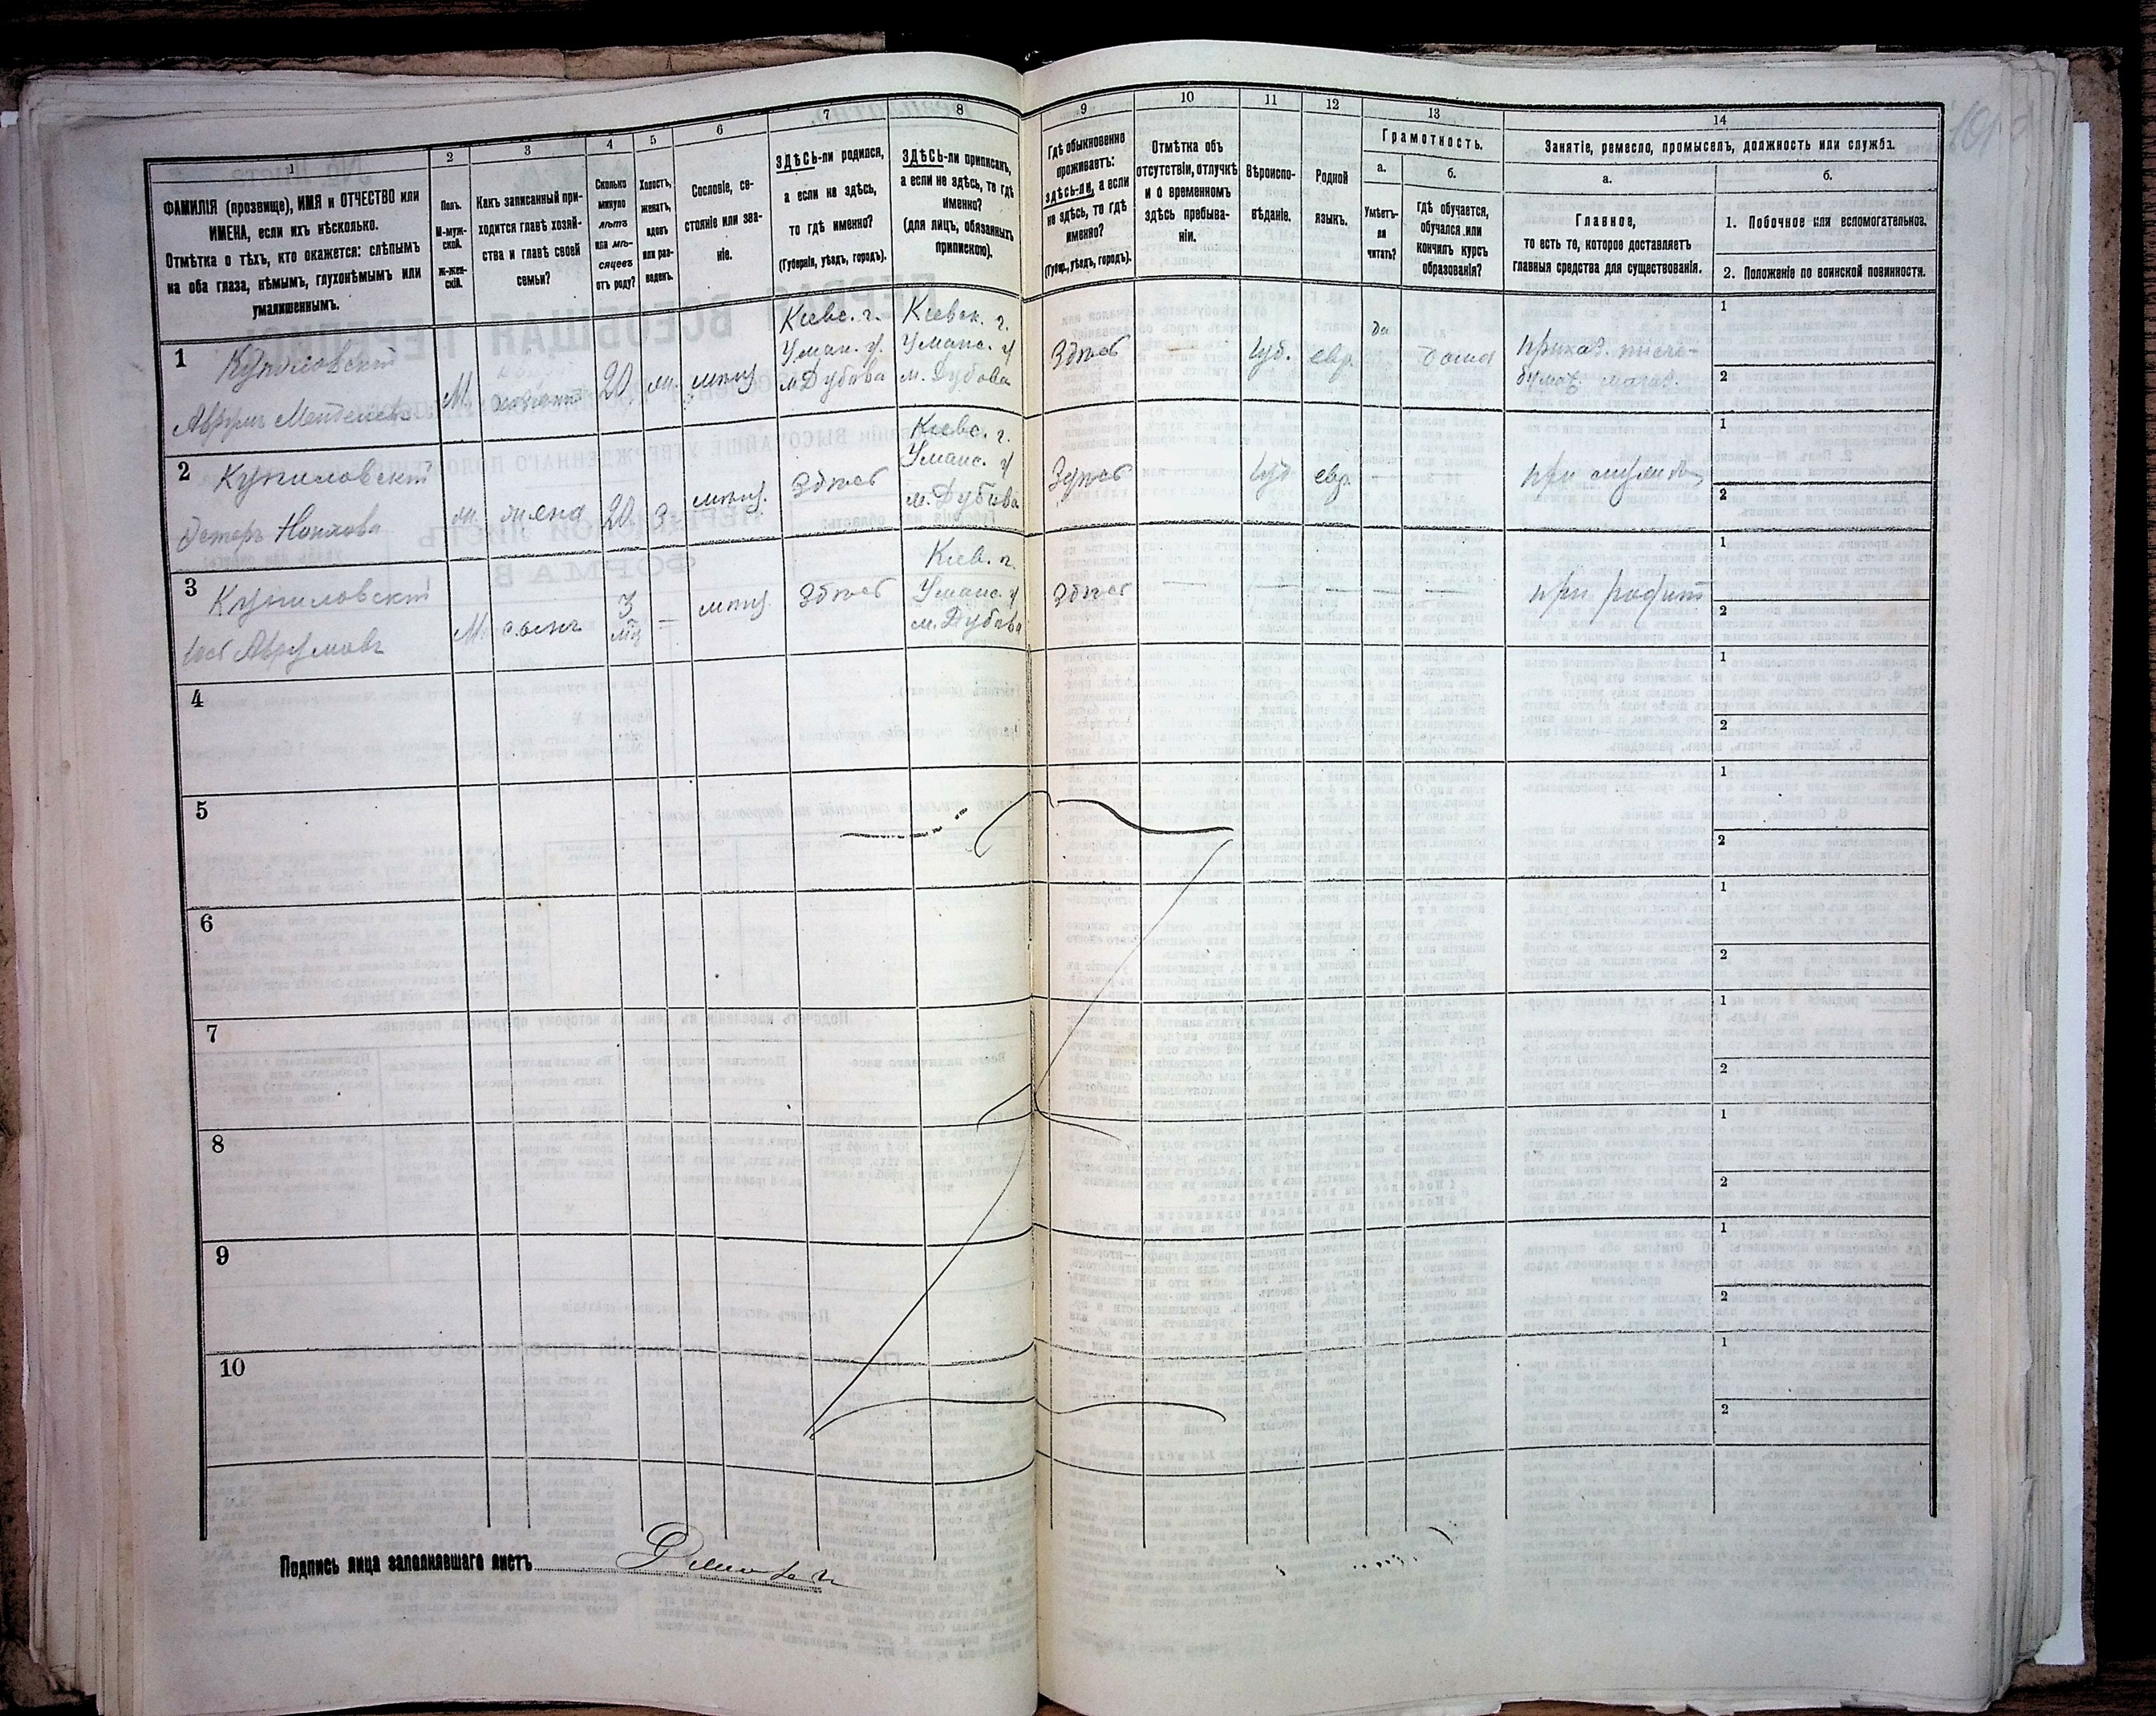 1
ФАМИЛІЯ (прозвище), ИМЯ и ОТЧЕСТВО или
ИМЕНА, если ихъ нѣсколько.
Отмѣтка о тѣхъ, кто окажется: слѣпымъ
на оба глаза, нѣмымъ, глухонѣмымъ или
умалишеннымъ.
2
Полъ.
М-муж-
ской.
Ж-жен-
скій.
3
Какъ записанный при-
ходится главѣ хозяй-
ства и главѣ своей
семьи?
4
Сколько
минуло
лѣтъ
или мѣ-
сяцевъ
отъ роду?
5
Холостъ,
женатъ,
вдовъ
или раз-
веденъ.
6
Сословіе, со-
стояніе или зва-
ніе.
7
ЗДѢСЬ-ли родился,
а если не здѣсь,
то гдѣ именно?
(Губернія, уѣздъ, городъ).
8
ЗДѢСЬ-ли приписанъ,
а если не здѣсь, то гдѣ
именно?
(для лицъ, обязанныхъ
припискою).
9
Гдѣ обыкновенно
проживаетъ:
здѣсь-ли, а если
не здѣсь, то гдѣ
именно?
(Губер., уѣздъ, городъ).
10
Отмѣтка объ
отсутствіи, отлучкѣ
и о временномъ
здѣсь пребыва-
ніи.
11
Вѣроиспо-
вѣданіе.
12
Родной
языкъ.
13
Грамотность.
а.
Умѣетъ-
ли
читать?
б.
Гдѣ обучается,
обучался или
кончилъ курсъ
образованія?
14
Занятіе, ремесло, промыселъ, должность или служба.
а.
Главное,
то есть то, которое доставляетъ
главныя средства для существованія.
б.
1. Побочное или вспомогательное.
2. Положеніе по воинской повинности.
1
Купиловскій
Аврумъ Менделевъ
М.
хозяинъ
20
ж.
мѣщ
Кіевс. г.
Уман. у.
м Дубова
Кіевск. г.
Уманс. у
м. Дубова
Здѣсь
Іуд.
евр.
да
дома
1
2
2
Купиловскій
Эстеръ
ж.
жена
20
З.
мѣщ.
Здѣсь
Кіевс. г.
Уманс. у
м. Дубова
Здѣсь
Іуд
евр.
при
1
2
3
Купиловскій
Аврумовъ
М.
сынъ
3
мѣщ.
Здѣсь
Кіев. г.
Уманс. у
м. Дубова
Здѣсь
при родит
1
2
4
1
2
5
1
2
6
1
2
7
1
2
8
1
2
9
1
2
10
1
2
Подпись лица заполнявшаго листъ